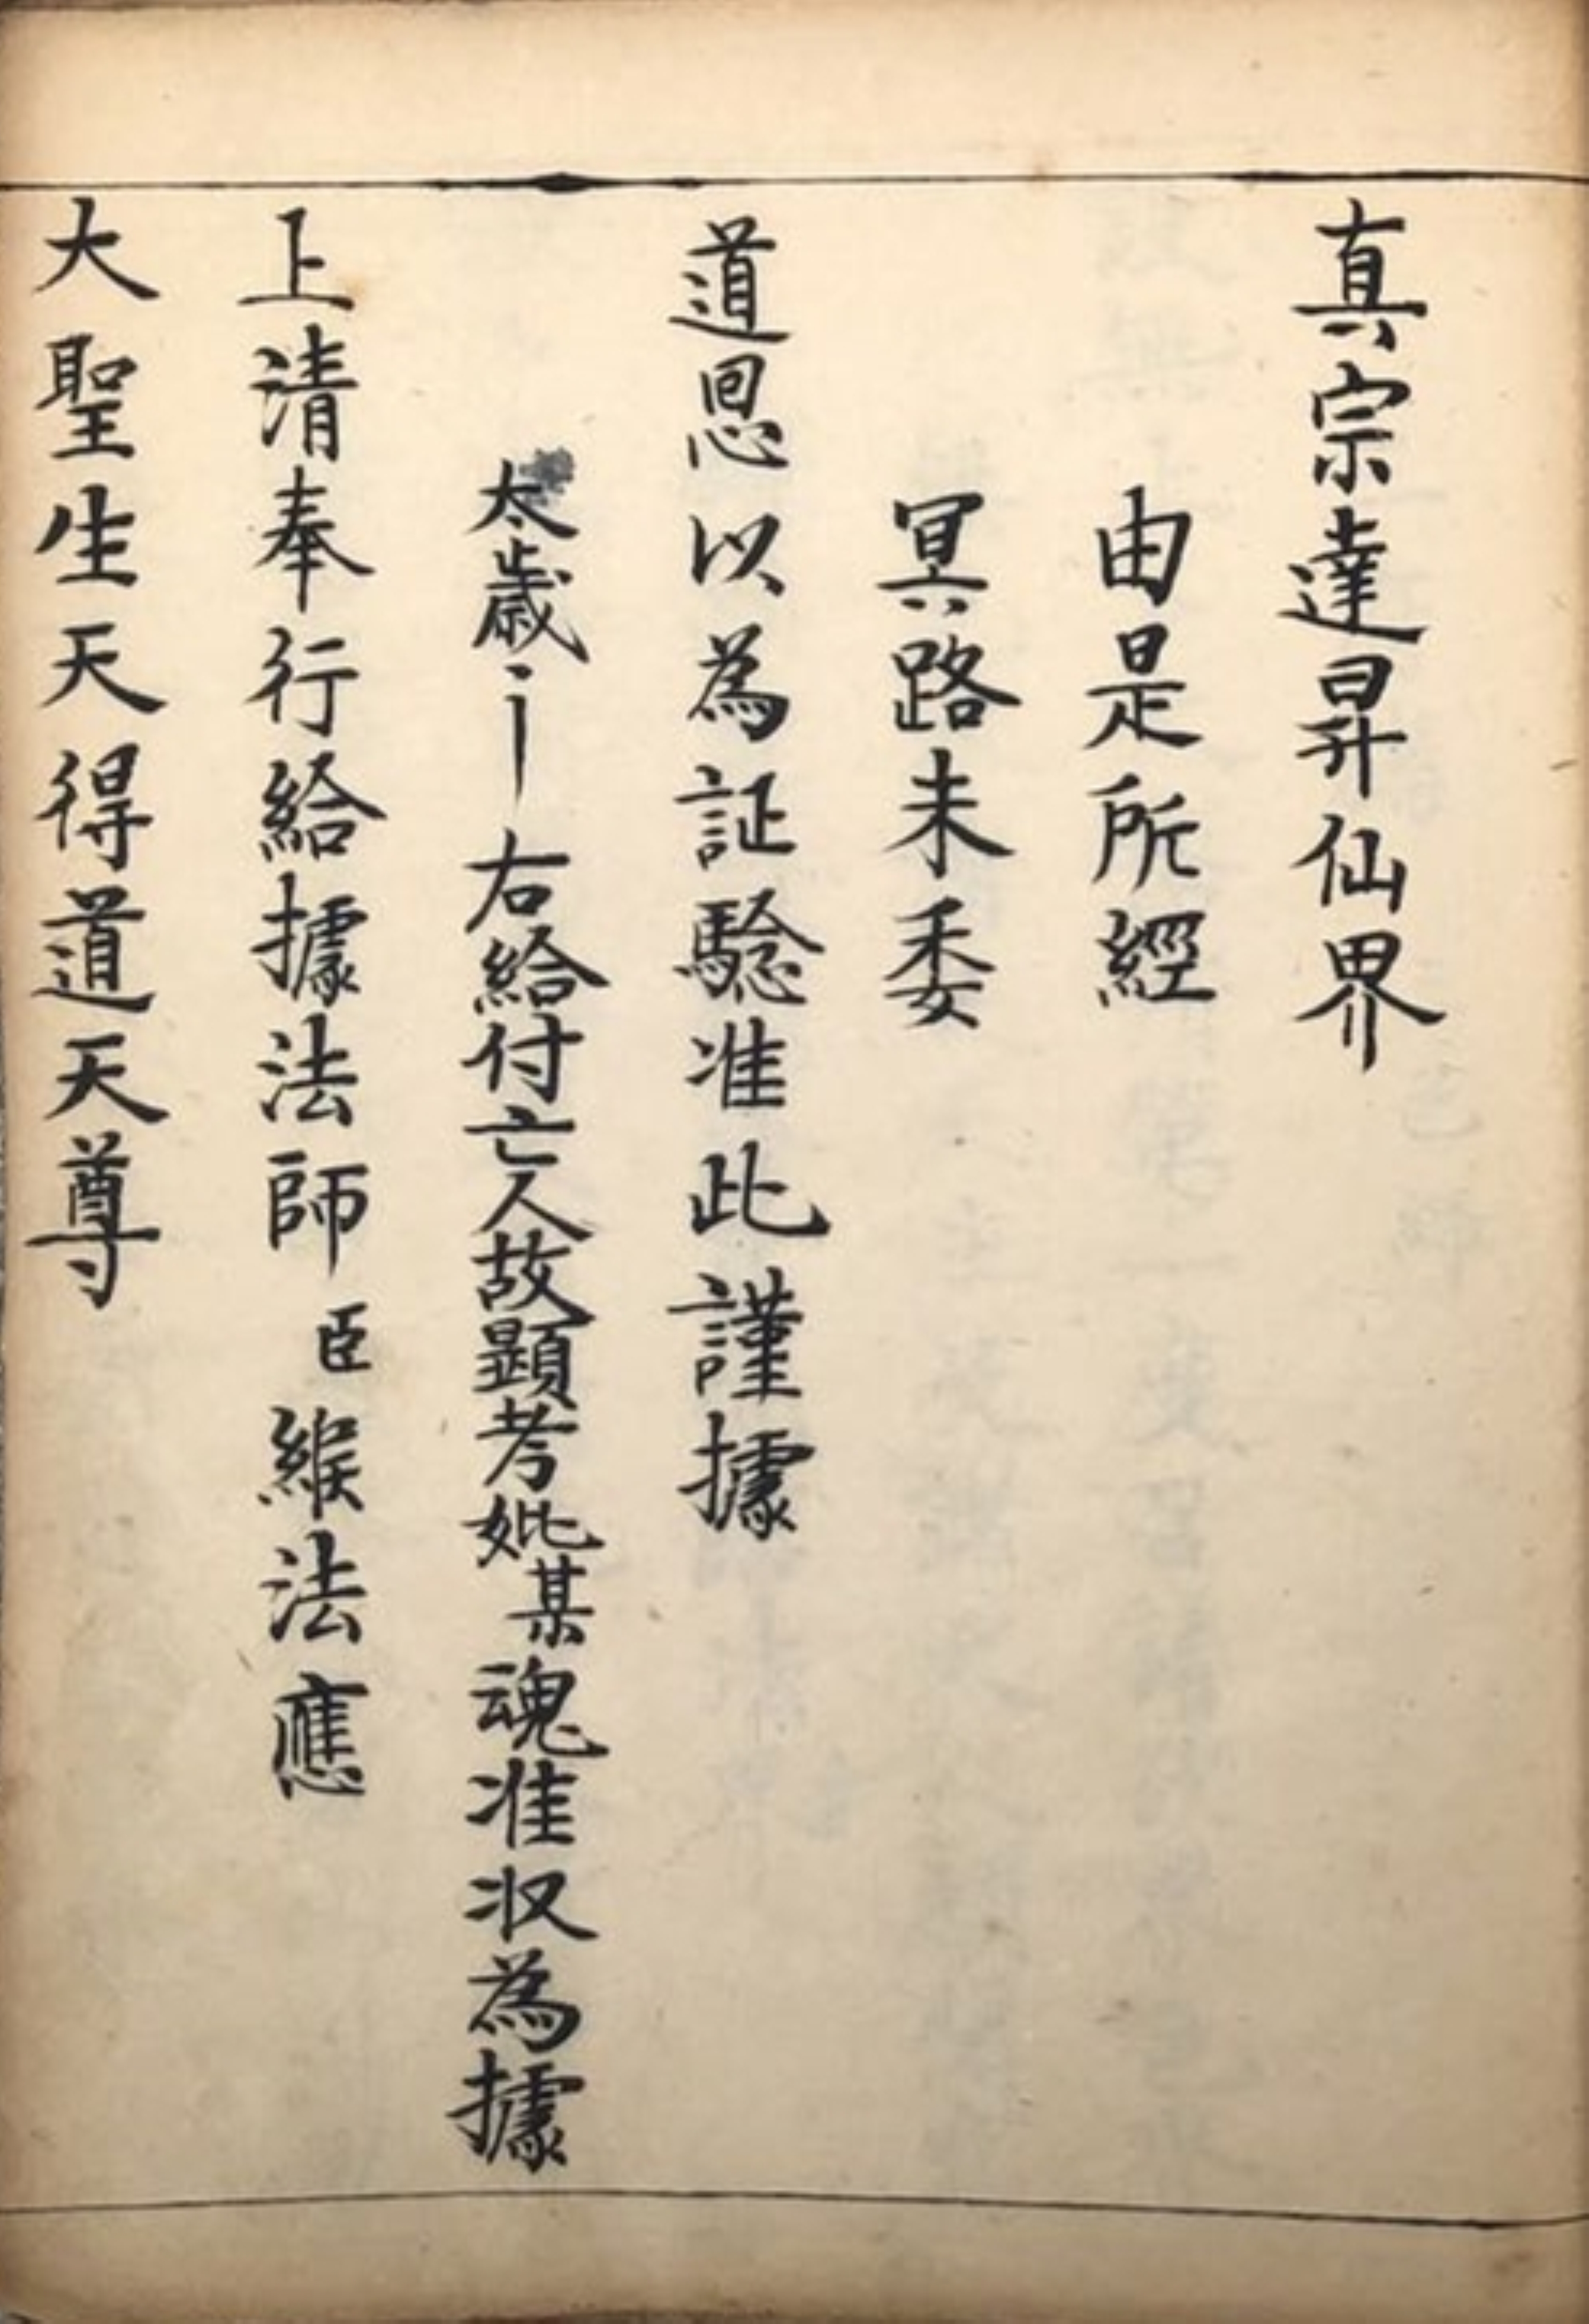 真宗達昇仙界
由是所經
冥路未委
道恩以為証驗准此謹據
太歲 右給付亡人故顯考妣某魂准收為據
上清奉行給據法師臣緱法應
大聖生天得道天尊